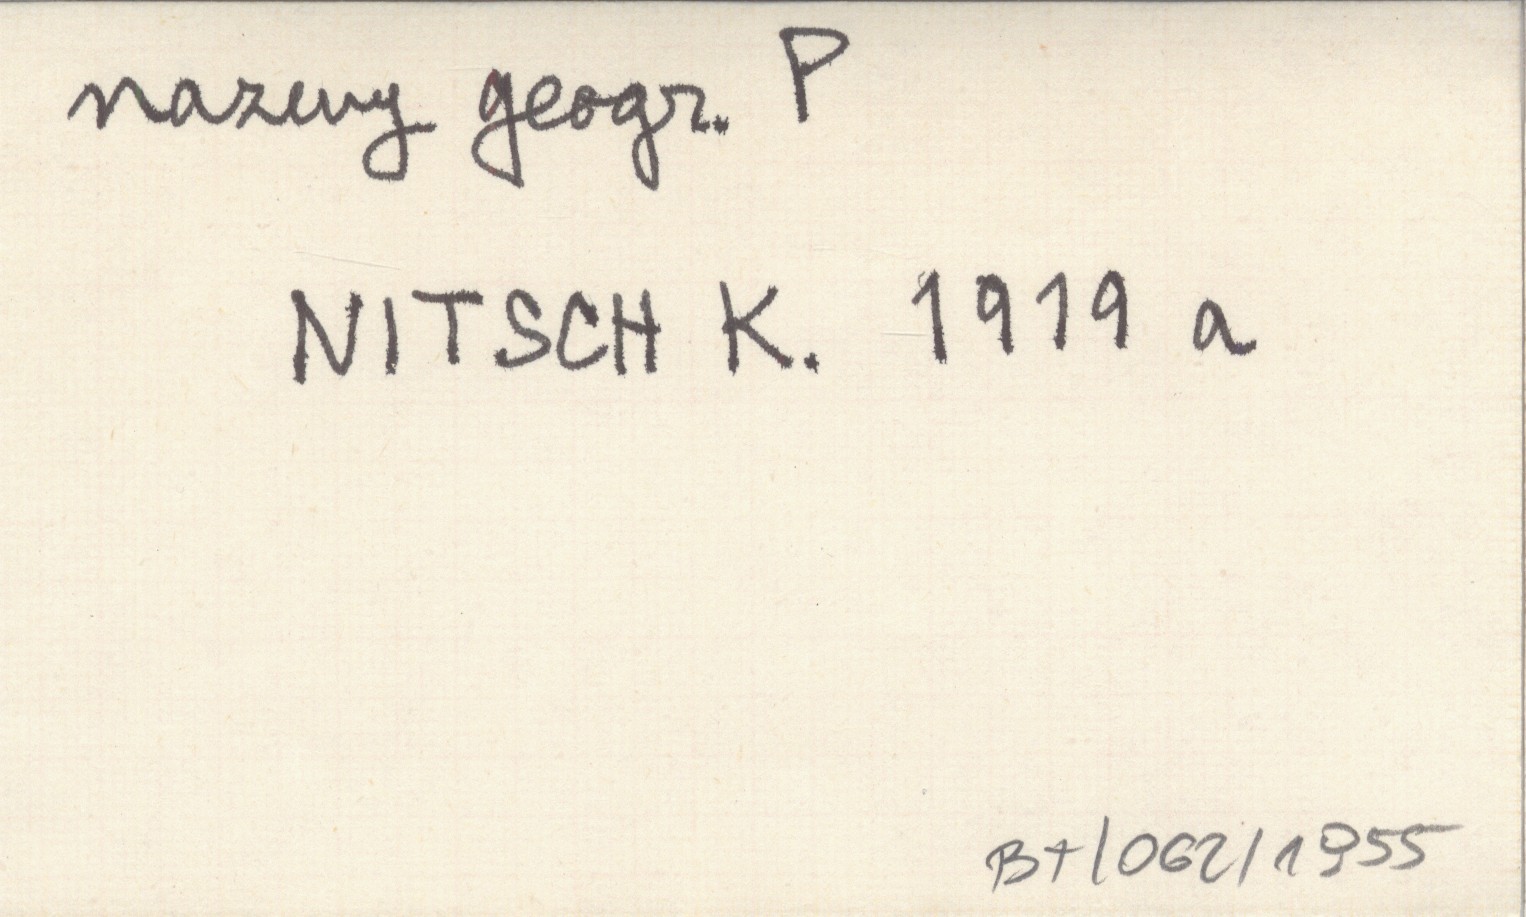 nazwy geogr. P
NITSCH K. 1919 a
B7/062/1955